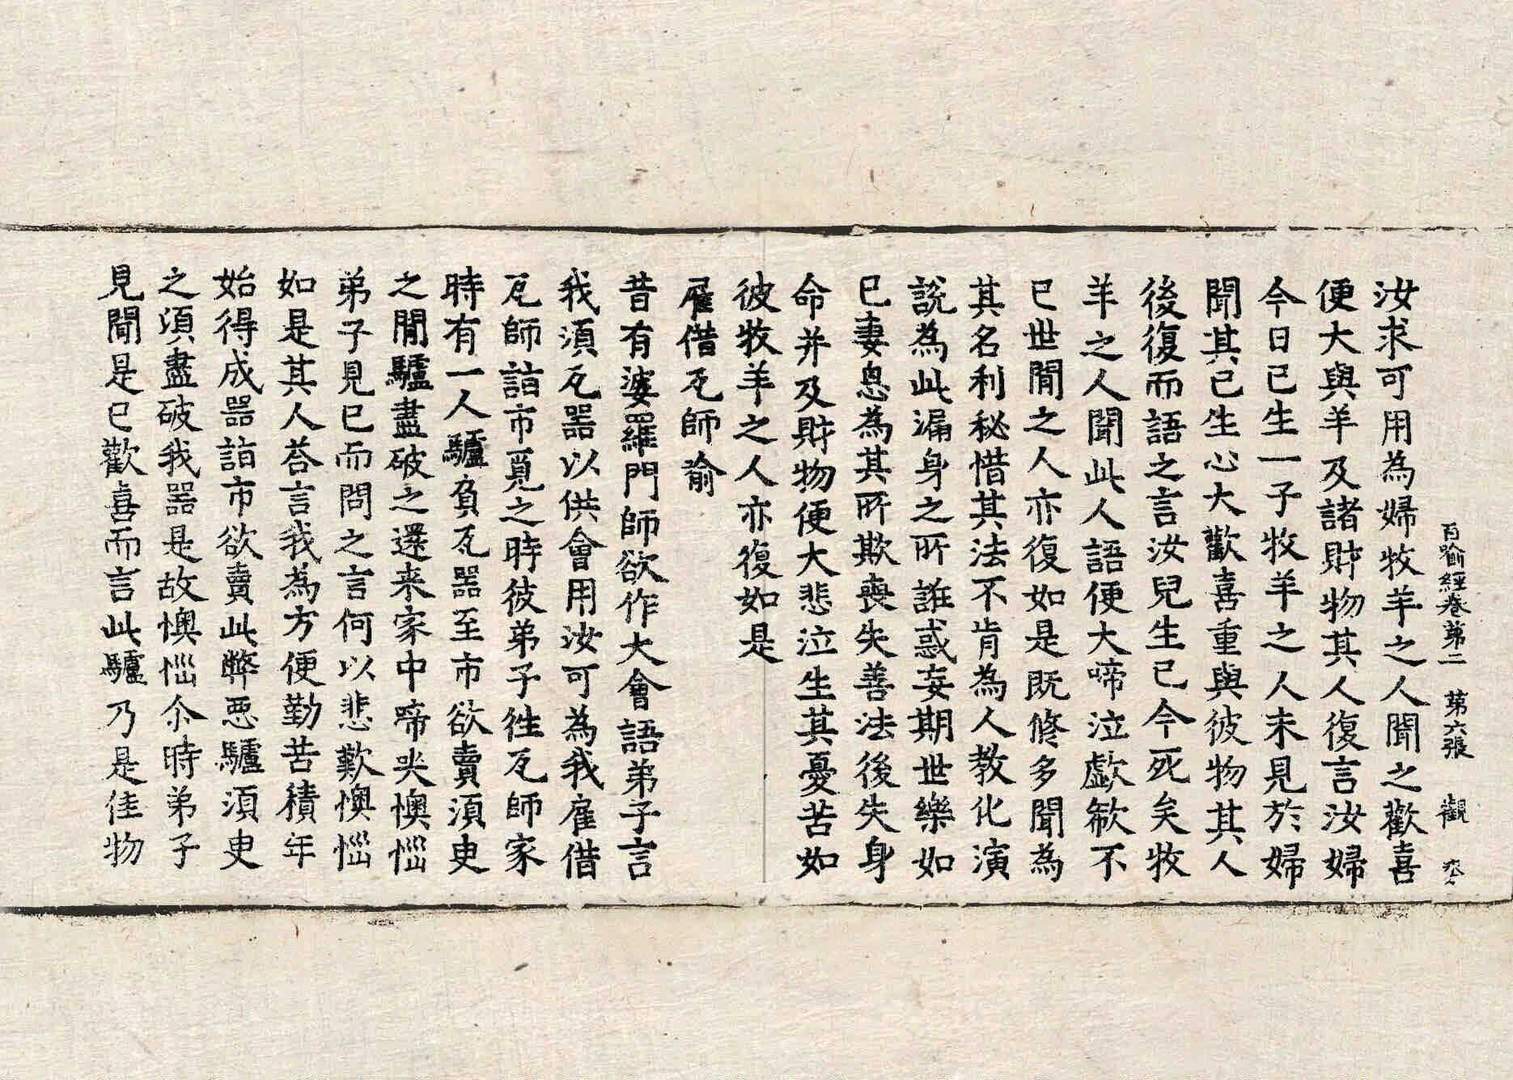 百喻經卷第二　第六張　觀
汝求可用為婦牧羊之人聞之歡喜
便大與羊及諸財物其人復言汝婦
今日已生一子牧羊之人未見於婦
聞其已生心大歡喜重與彼物其人
後復而語之言汝兒生已今死矣牧
羊之人聞此人語便大啼泣歔欷不
已世間之人亦復如是既修多聞為
其名利秘惜其法不肯為人教化演
說為此漏身之所誑惑妄期世樂如
已妻息為其所欺喪失善法後失身
命并及財物便大悲泣生其憂苦如
彼牧羊之人亦復如是
雇借瓦師喻
昔有婆羅門師欲作大會語弟子言
我須瓦器以供會用汝可為我雇借
瓦師詣市覓之時彼弟子往瓦師家
時有一人驢負瓦器至市欲賣須臾
之間驢盡破之還來家中啼哭懊惱
弟子見已而問之言何以悲歎懊惱
如是其人荅言我為方便勤苦積年
始得成器詣市欲賣此弊惡驢須臾
之須盡破我器是故懊惱尒時弟子
見聞是已歡喜而言此驢乃是佳物